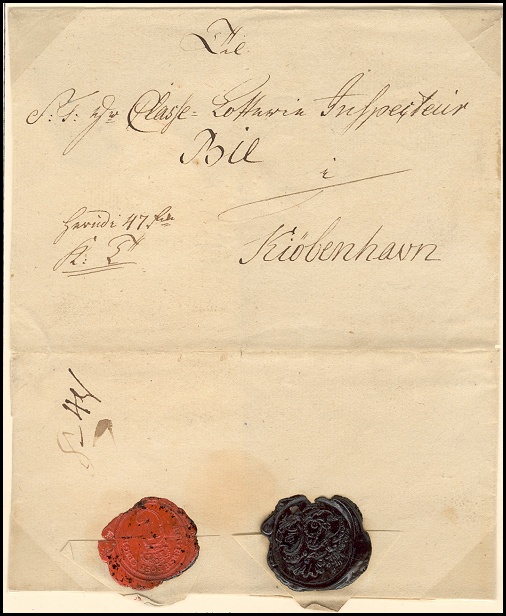 Til
S: T: Hr Classe= Lotterie Inspecteur
Bil
i
Kiöbenhavn
Herudi 47
R: T